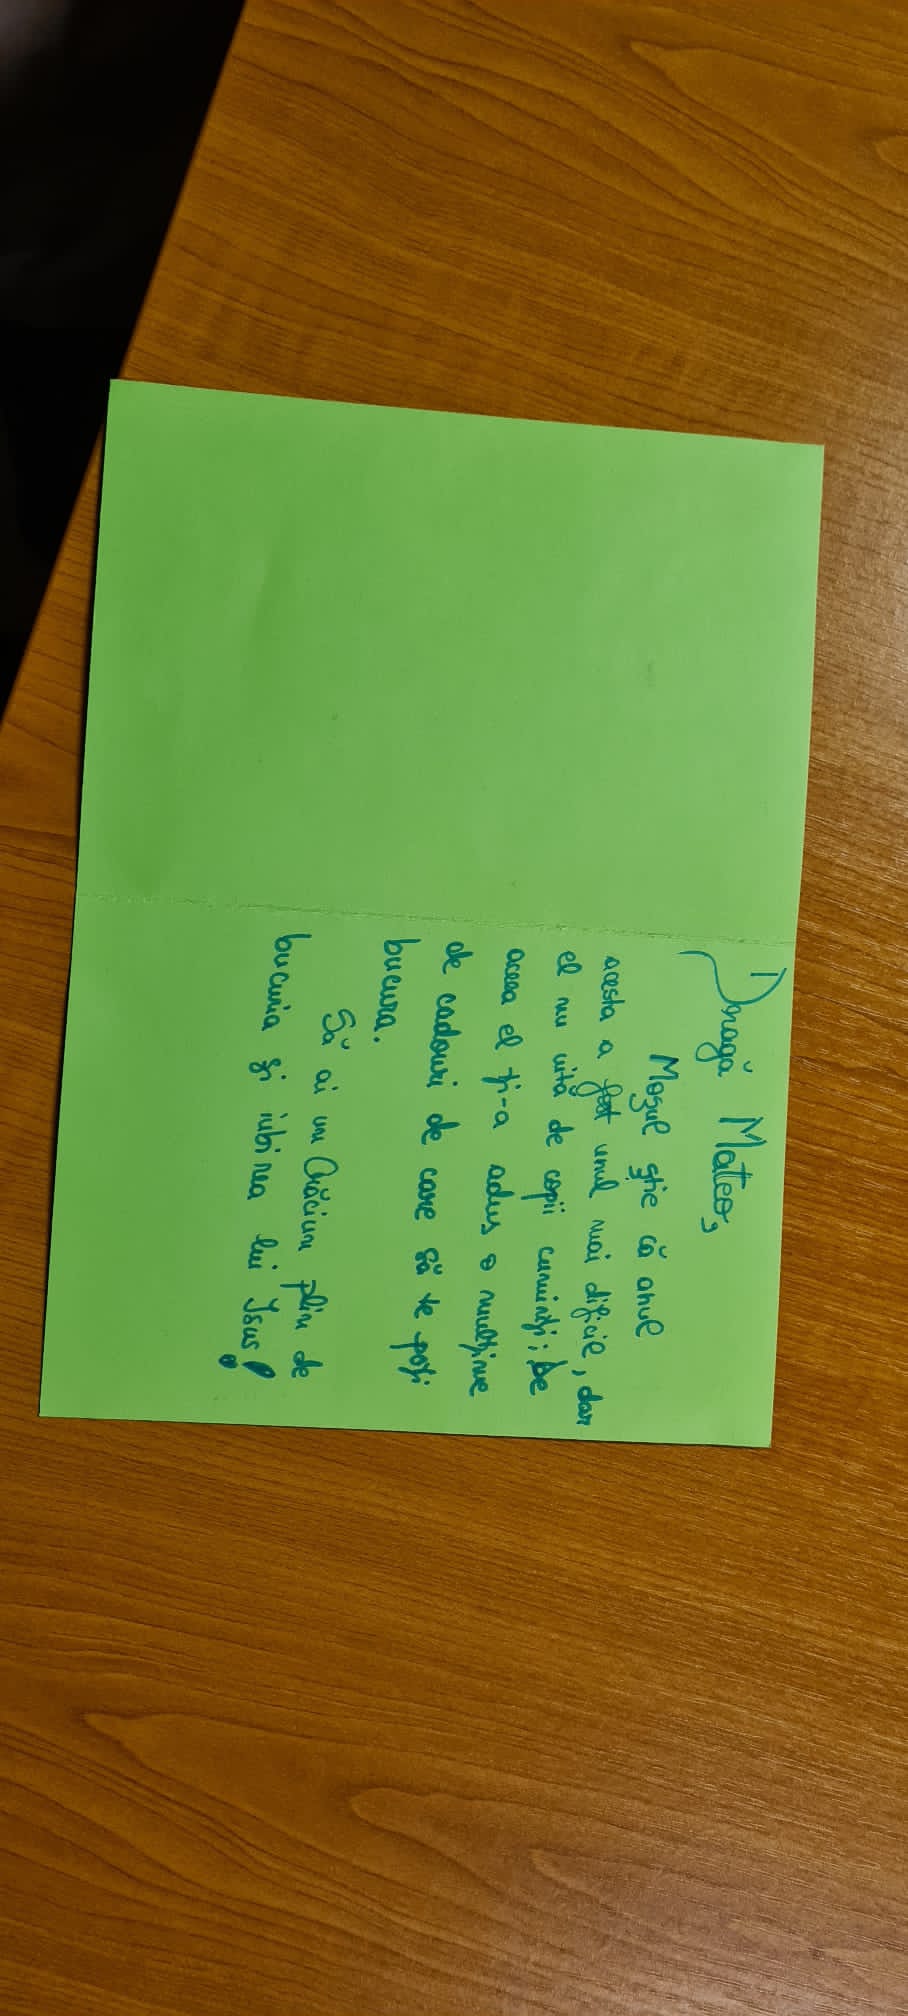 Dragă Mateo,
Moșul știe că anul
acesta a fost unul mai dificil, dar
el nu uită de copii cuminți; De
aceea el ți-a adus o mulțime
de cadouri de care să te poți
bucura.
Să ai un Crăciun plin de
bucuria și iubirea lui Isus!